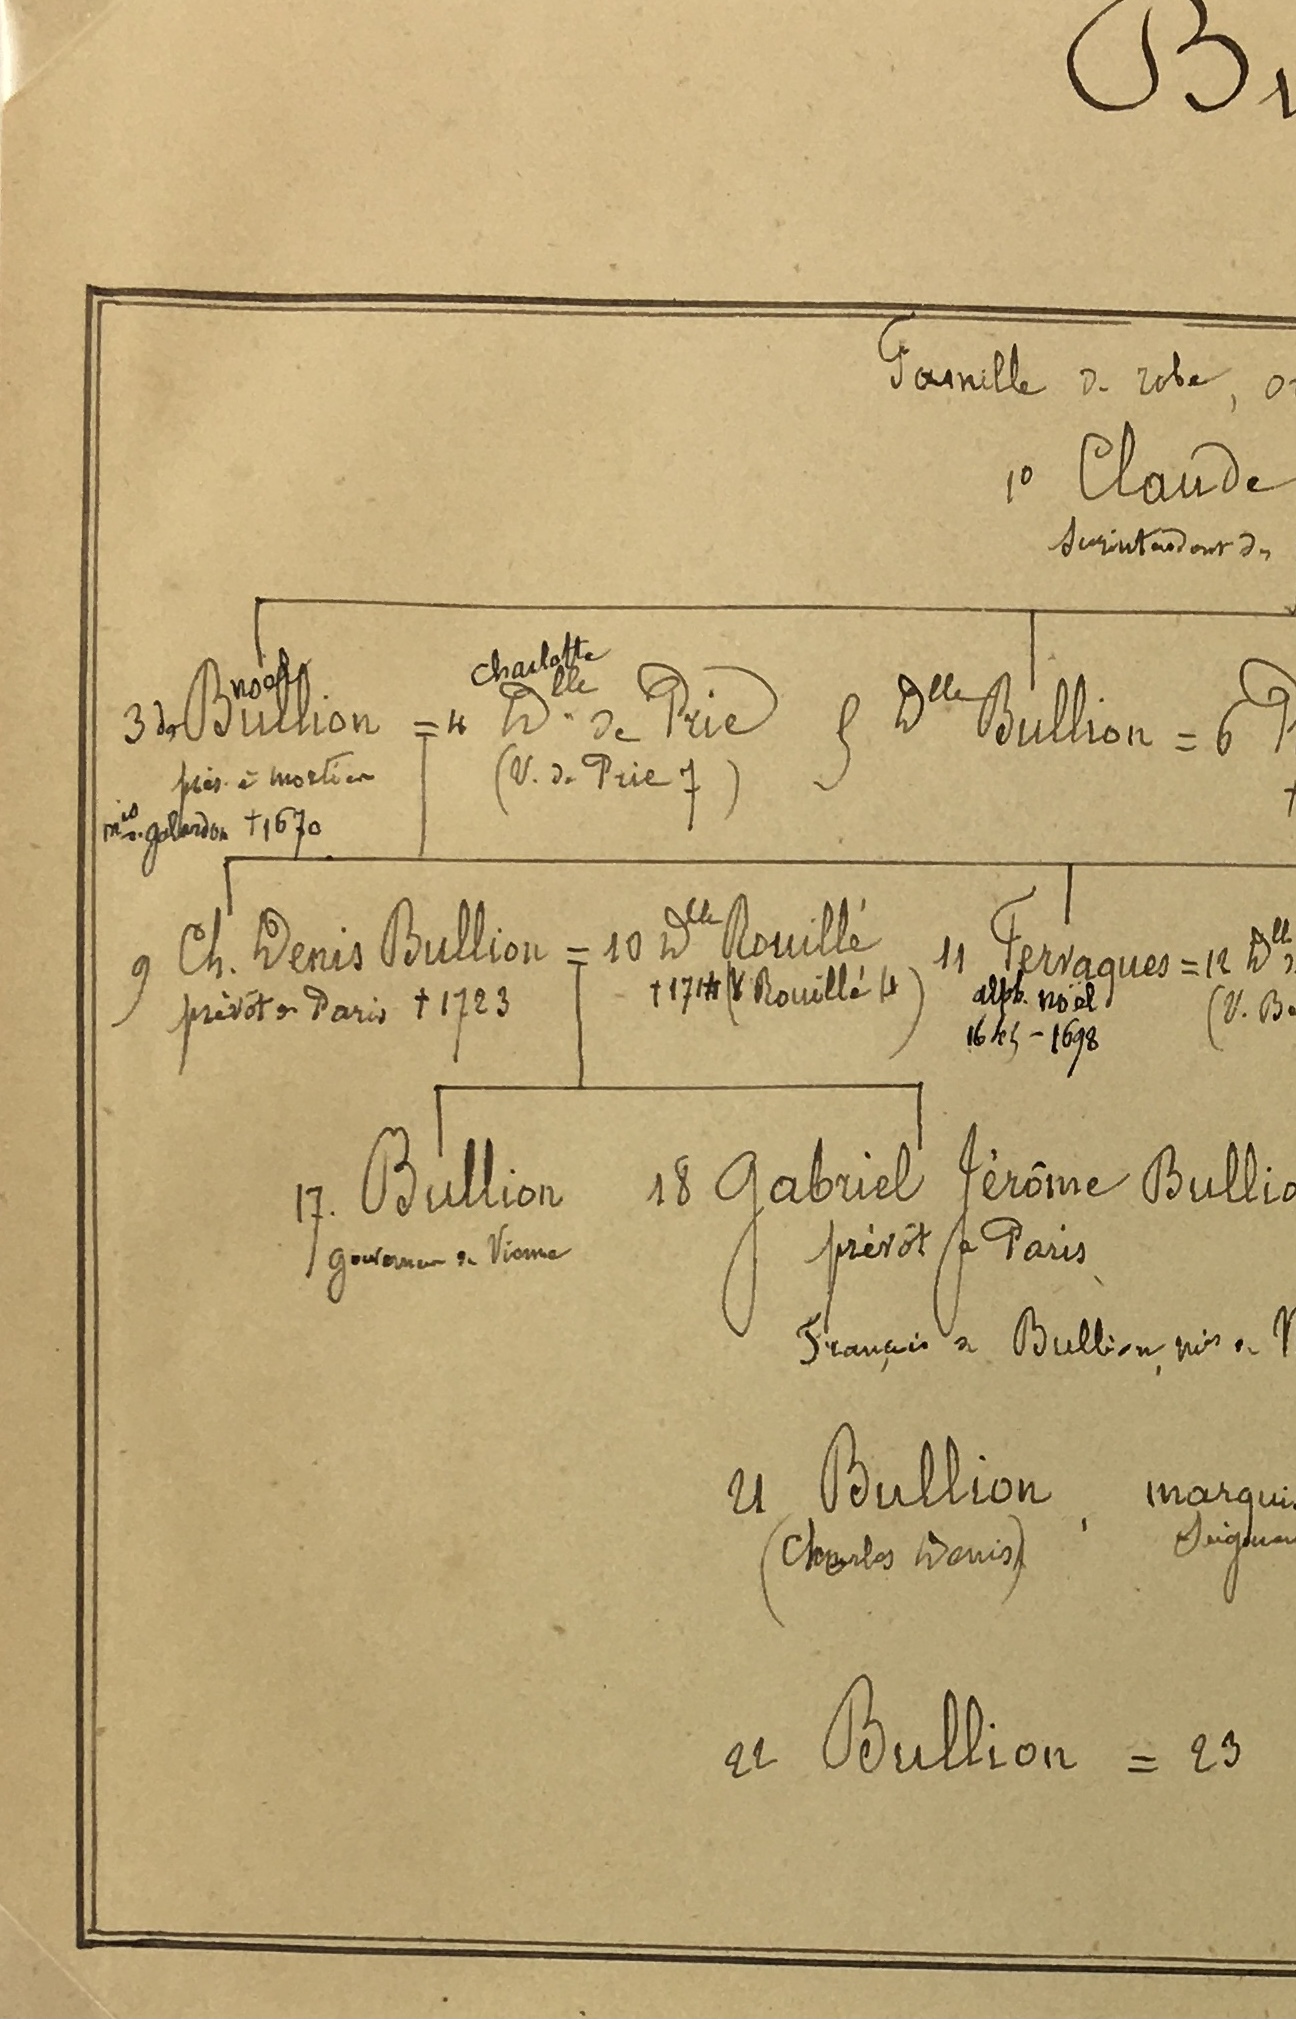 Bu
Famille de robe, or
1° Claude
Surintendant des
3 de Bullion = 4 Dlle de Prie
noël
Charlotte
(V. de Prie 7)
prés. à mortier
mis de galardon †1670
5 Dlle Bullion = 6 P
†
9 Ch. Denis Bullion = 10 Dlle Rouillé
prévôt de Paris †1723
†1714 (V Rouillé 4)
11 Fervaques = 12 Dlle d
alph. noël
1645 - 1698
(V. Be
17. Bullion
gouverneur de Vienne
18 Gabriel Jérôme Bullio
prévôt de Paris
François de Bullion, mis de V
21 Bullion, marquis
(Charles Denis)
Seigneur
22 Bullion = 23